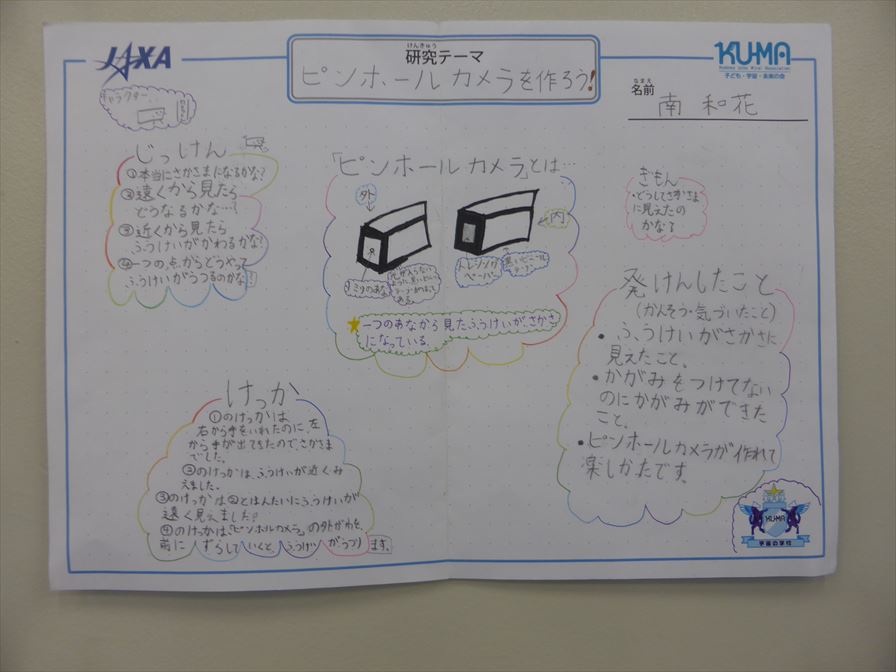 JAXA
けんきゅう
研究テーマ
ピンホールカメラを作ろう!
KU-MA
子ども・宇宙・未来の会
なまえ
名前
南 和花
キャラクター
じっけん
①本当にさかさまになるかな?
②遠くから見たら
どうなるかな…?
③近くから見たら
ふうけいがかわるかな?
④一つの点からどうやって
ふうけいがうつるのかな?
「ピンホールカメラ」とは…
外
内
光が入らない
ように黒いビニール
テープ
ある。
トレシング
ペーパー
黒いビニール
テープ
★一つのあなから見たふうけいが、さかさ
になっている。
ぎもん
・どうしてさかさま
に見えたの
かな?
発けんしたこと
(かんそう・気づいたこと)
・ふうけいがさかさに
見えたこと。
・かがみをつけてない
のにかがみができた
こと。
・ピンホールカメラが作れて
楽しかたです。
けっか
①のけっかは
右から手をいれたのに、左
から手が出てきたのでさかさま
でした。
②のけっかは、ふうけいが近くみ
えました。
③のけっかは②とはんたいにふうけいが
遠く見えました。
④のけっかは、「ピンホルカメラ」の外がわを、
前に ずらして いくと、ふうけいがうつり ます。
KU-MA
宇宙の学校